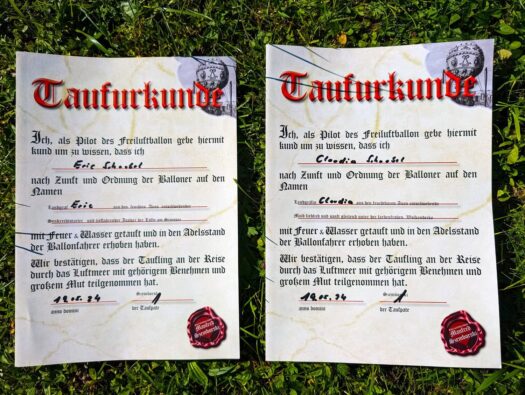 Taufurkunde
Ich, als Pilot des Freiluftballon gebe hiermit
kund um zu wissen, dass ich
Eric Schochel
nach Zunft und Ordnung der Balloner auf den
Namen
Landgraf Eric von den feuchtbaren Auen
mit Feuer & Wasser getauft und in den Adelsstand
der Ballonfahrer erhoben haben.
Wir bestätigen, dass der Taufling an der Reise
durch das Luftmeer mit gehörigem Benehmen und
großem Mut teilgenommen hat.
19.05.24
anno domini der Taufpate
Manfred
Taufurkunde
Ich, als Pilot des Freiluftballon gebe hiermit
kund um zu wissen, dass ich
Claudia
nach Zunft und Ordnung der Balloner auf den
Namen
Landgräfin Claudia von den
mit Feuer & Wasser getauft und in den Adelsstand
der Ballonfahrer erhoben haben.
Wir bestätigen, dass der Taufling an der Reise
durch das Luftmeer mit gehörigem Benehmen und
großem Mut teilgenommen hat.
19.05.24
anno domini der Taufpate
Manfred